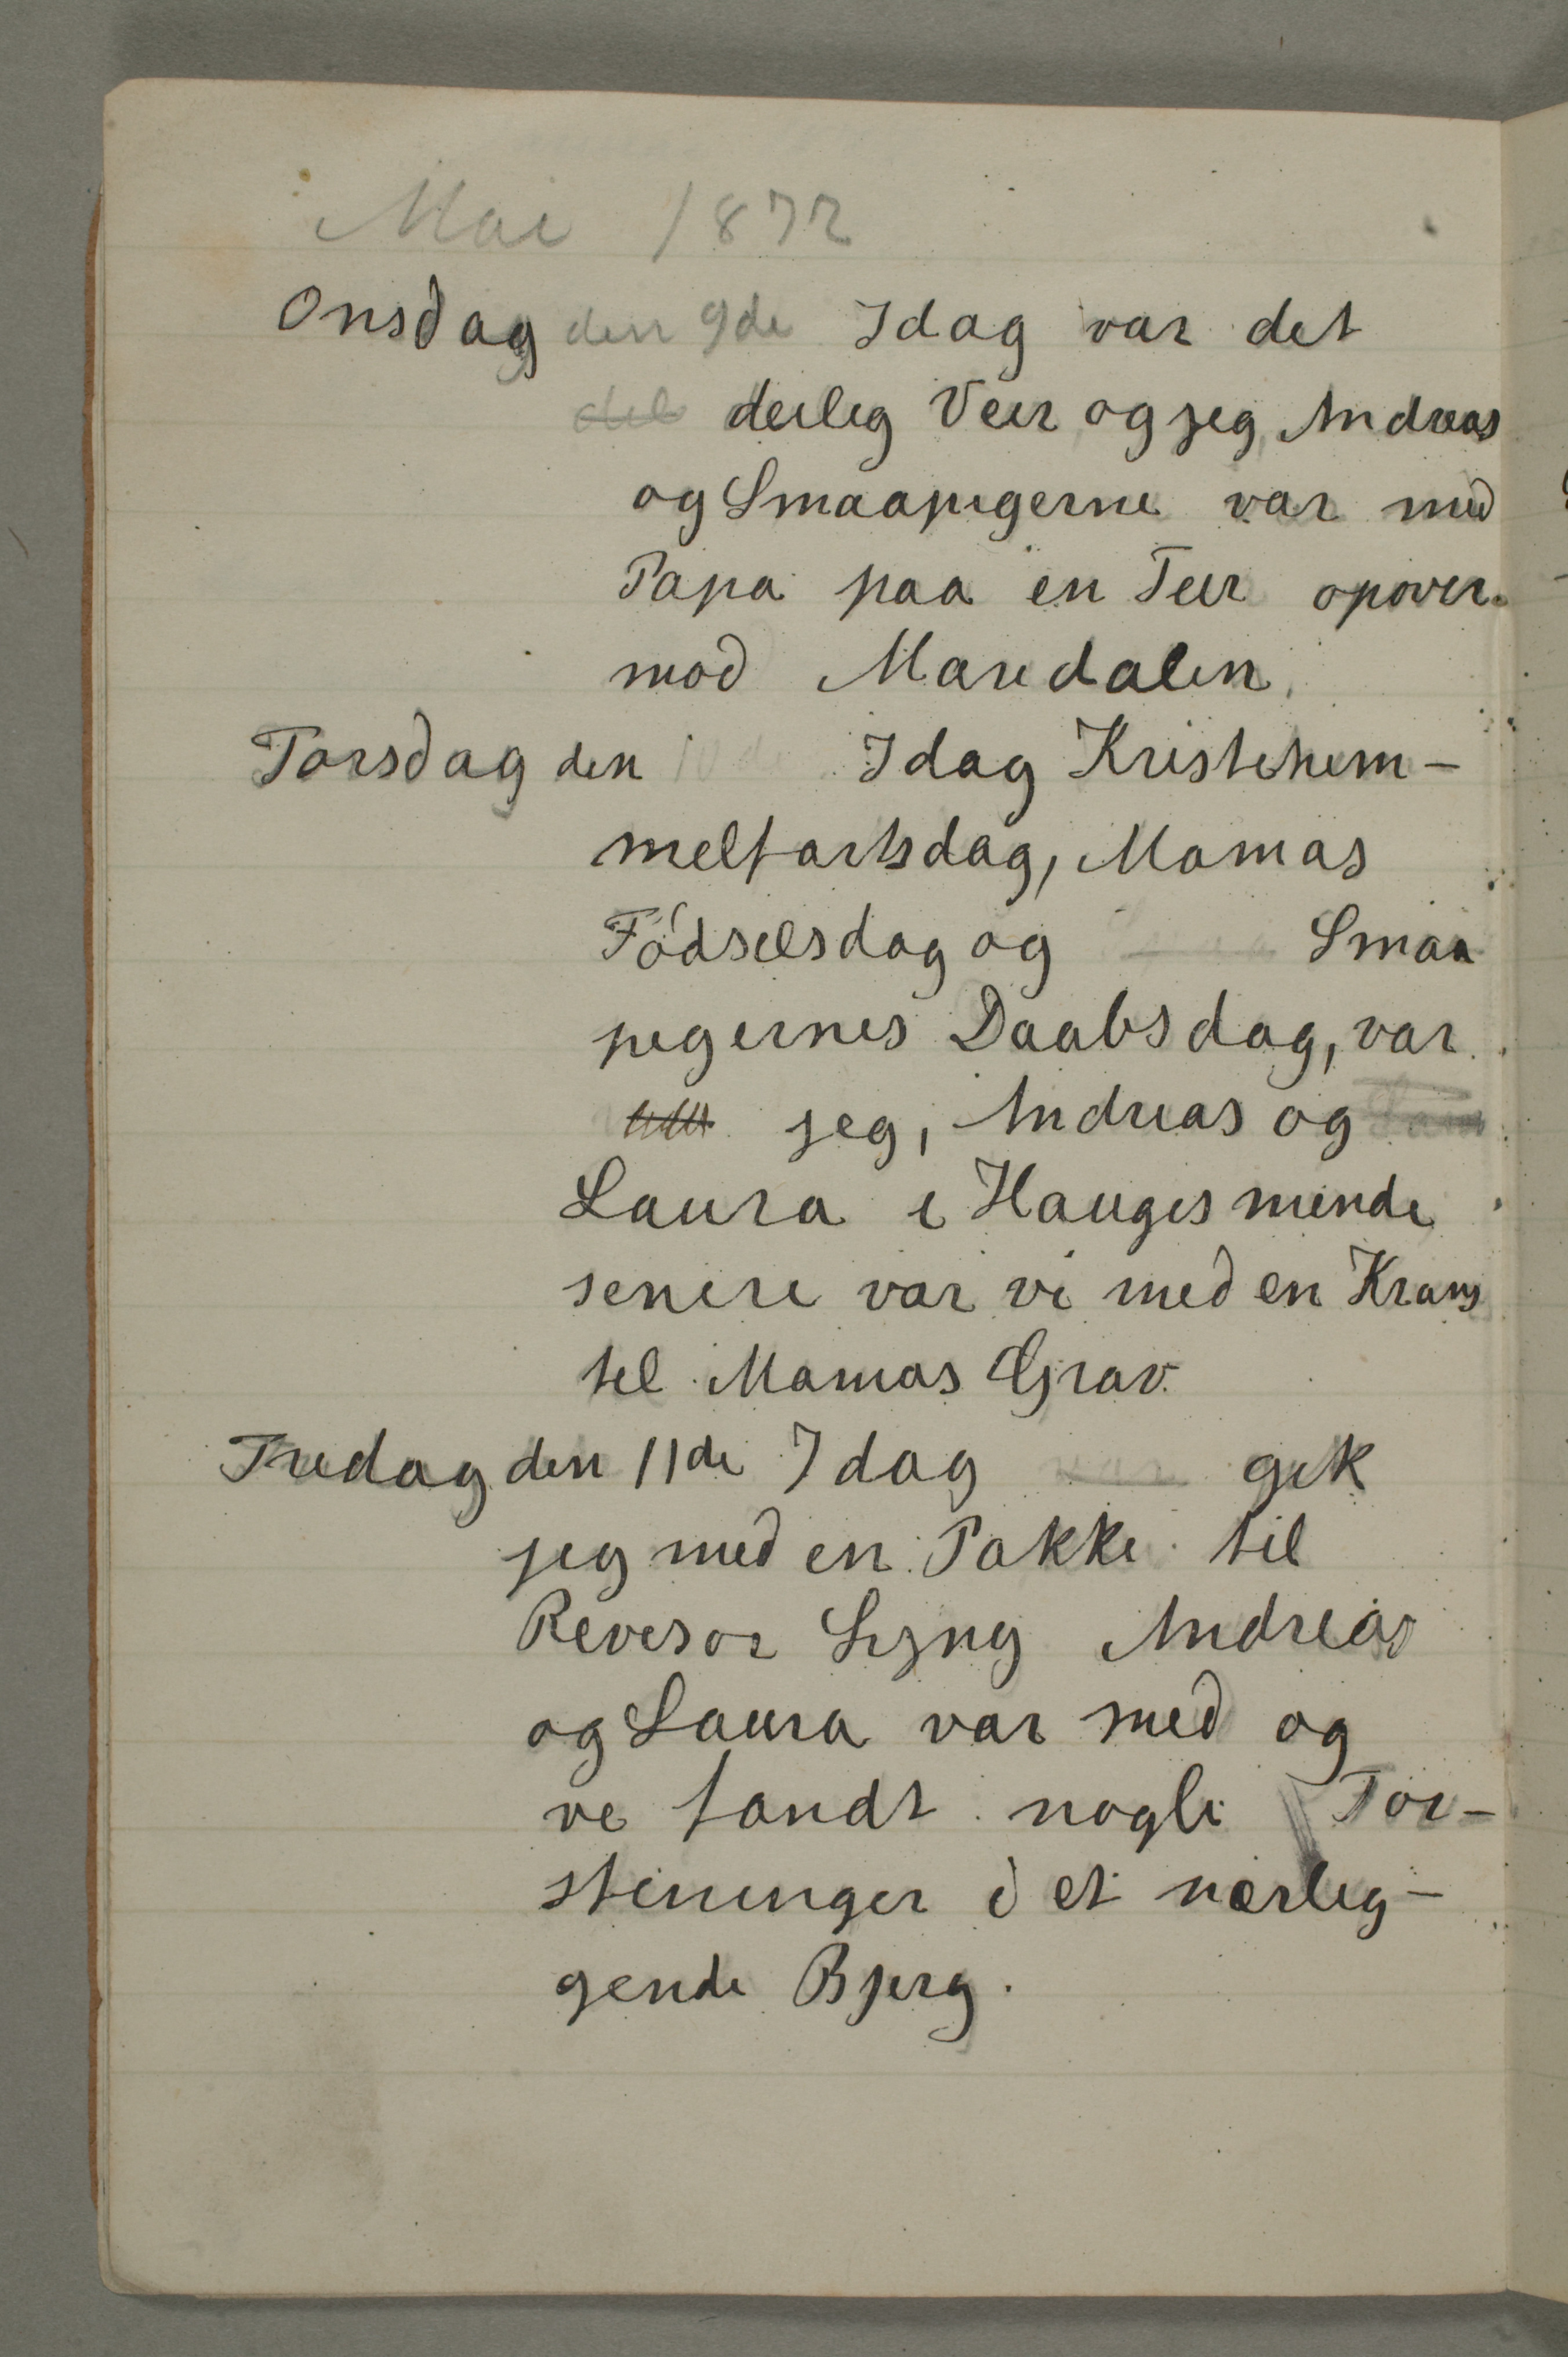 Mai 1872
Onsdag den 9de Idag var det
del deilig Veir og jeg, Andreas
og Smaapigerne var med
Papa paa en Tur opover
mod Maridalen.
Torsdag den 10de Idag Kristihim-
melfartsdag, Mamas
Fødselsdag og Smaa
pigernes Daabsdag, var
jeg, Andreas og
Laura i Haugesminde
senere var vi med en Krans
til Mamas Grav.
Fredag den 11de Idag var gik
jeg med en Pakke til
Revisor Lyng Andreas
og Laura var med og
vi fandt nogle For-
steninger i et nærlig-
gende Bjerg.